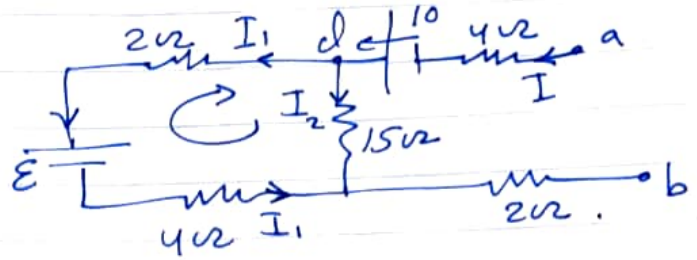 2Ω I₁ d 10 4Ω a
I
I₂ 15Ω
ε
4Ω I₁ 2Ω . b